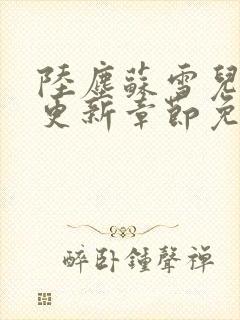 陸塵蘇雪兒
更新章節免
醉卧鍾聲禅